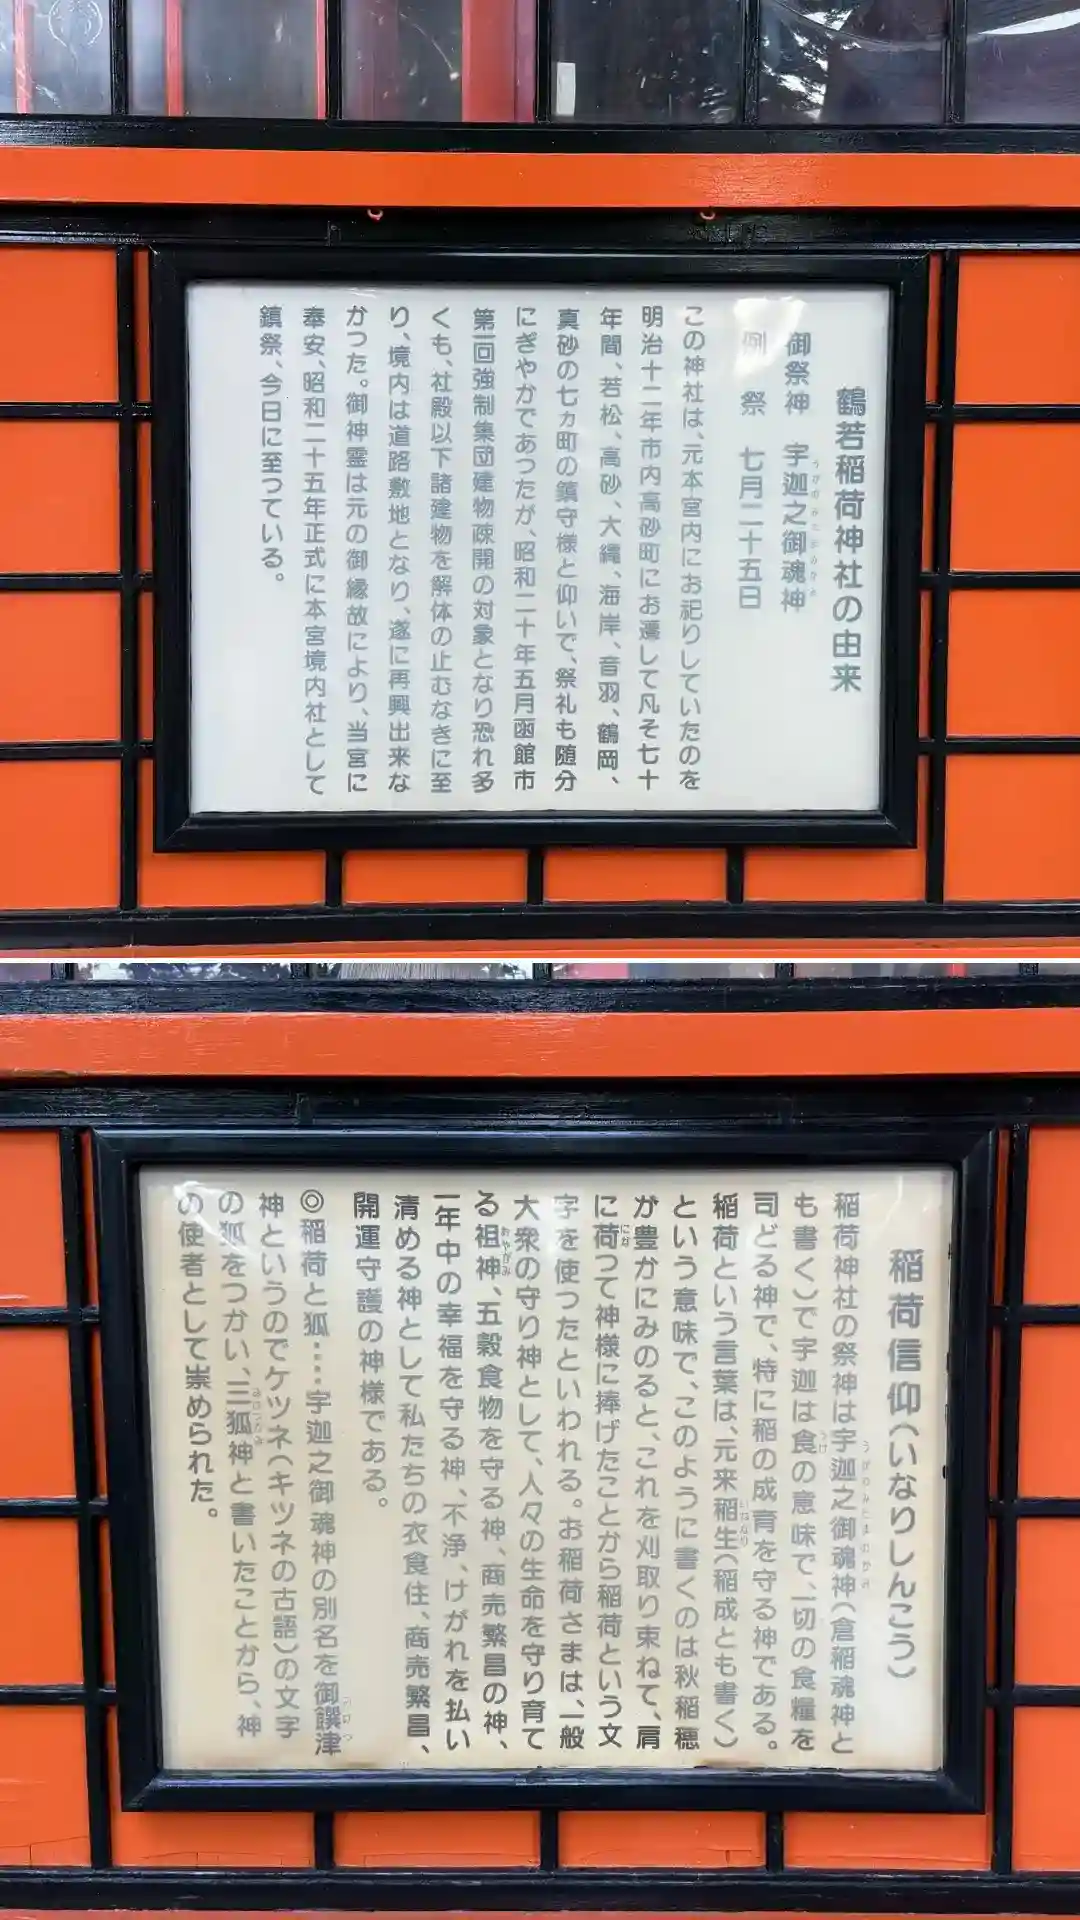 鶴若稲荷神社の由来
御祭神　宇迦之御魂神
うかのみたまのかみ
例　祭　七月二十五日
この神社は、元本宮内にお祀りしていたのを
明治十二年市内高砂町にお遷して凡そ七十
年間、若松、高砂、大縄、海岸、音羽、鶴岡、
真砂の七ヵ町の鎮守様と仰いで、祭礼も随分
にぎやかであつたが、昭和二十年五月函館市
第一回強制集団建物疎開の対象となり恐れ多
くも、社殿以下諸建物を解体の止むなきに至
り、境内は道路敷地となり、遂に再興出来な
かつた。御神霊は元の御縁故により、当宮に
奉安、昭和二十五年正式に本宮境内社として
鎮祭、今日に至つている。
稲荷信仰(いなりしんこう)
稲荷神社の祭神は宇迦之御魂神(倉稲魂神と
うかのみたまのかみ
も書く)で宇迦は食の意味で、一切の食糧を
うけ
司どる神で、特に稲の成育を守る神である。
稲荷という言葉は、元来稲生(稲成とも書く)
いねなり
という意味で、このように書くのは秋稲穂
が豊かにみのると、これを刈取り束ねて、肩
に荷つて神様に捧げたことから稲荷という文
にな
字を使つたといわれる。お稲荷さまは、一般
大衆の守り神として、人々の生命を守り育て
る祖神、五穀食物を守る神、商売繁昌の神、
おやがみ
一年中の幸福を守る神、不浄、けがれを払い
清める神として私たちの衣食住、商売繁昌、
開運守護の神様である。
◎稲荷と狐……宇迦之御魂神の別名を御饌津
みけつ
神というのでケツネ(キツネの古語)の文字
の狐をつかい、三狐神と書いたことから、神
みけつかみ
の使者として崇められた。